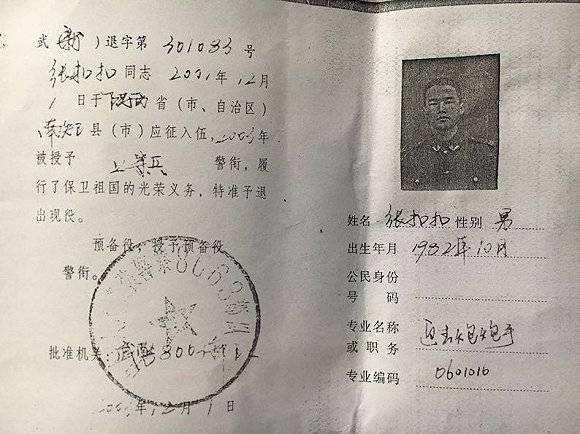 武(新)退字第301083号
张扣扣同志2001年12月
1日于陕西省(市、自治区)
南郑县(市)应征入伍,2003年
被授予 上等兵 警衔,履
行了保卫祖国的光荣义务,特准予退
出现役。
预备役,授予预备役
警衔。
批准机关:
年12月1日
姓名 张扣扣 性别 男
出生年月 1982年10月
公民身份
号码
专业名称 迫击炮炮手
或职务
专业编码 0601010